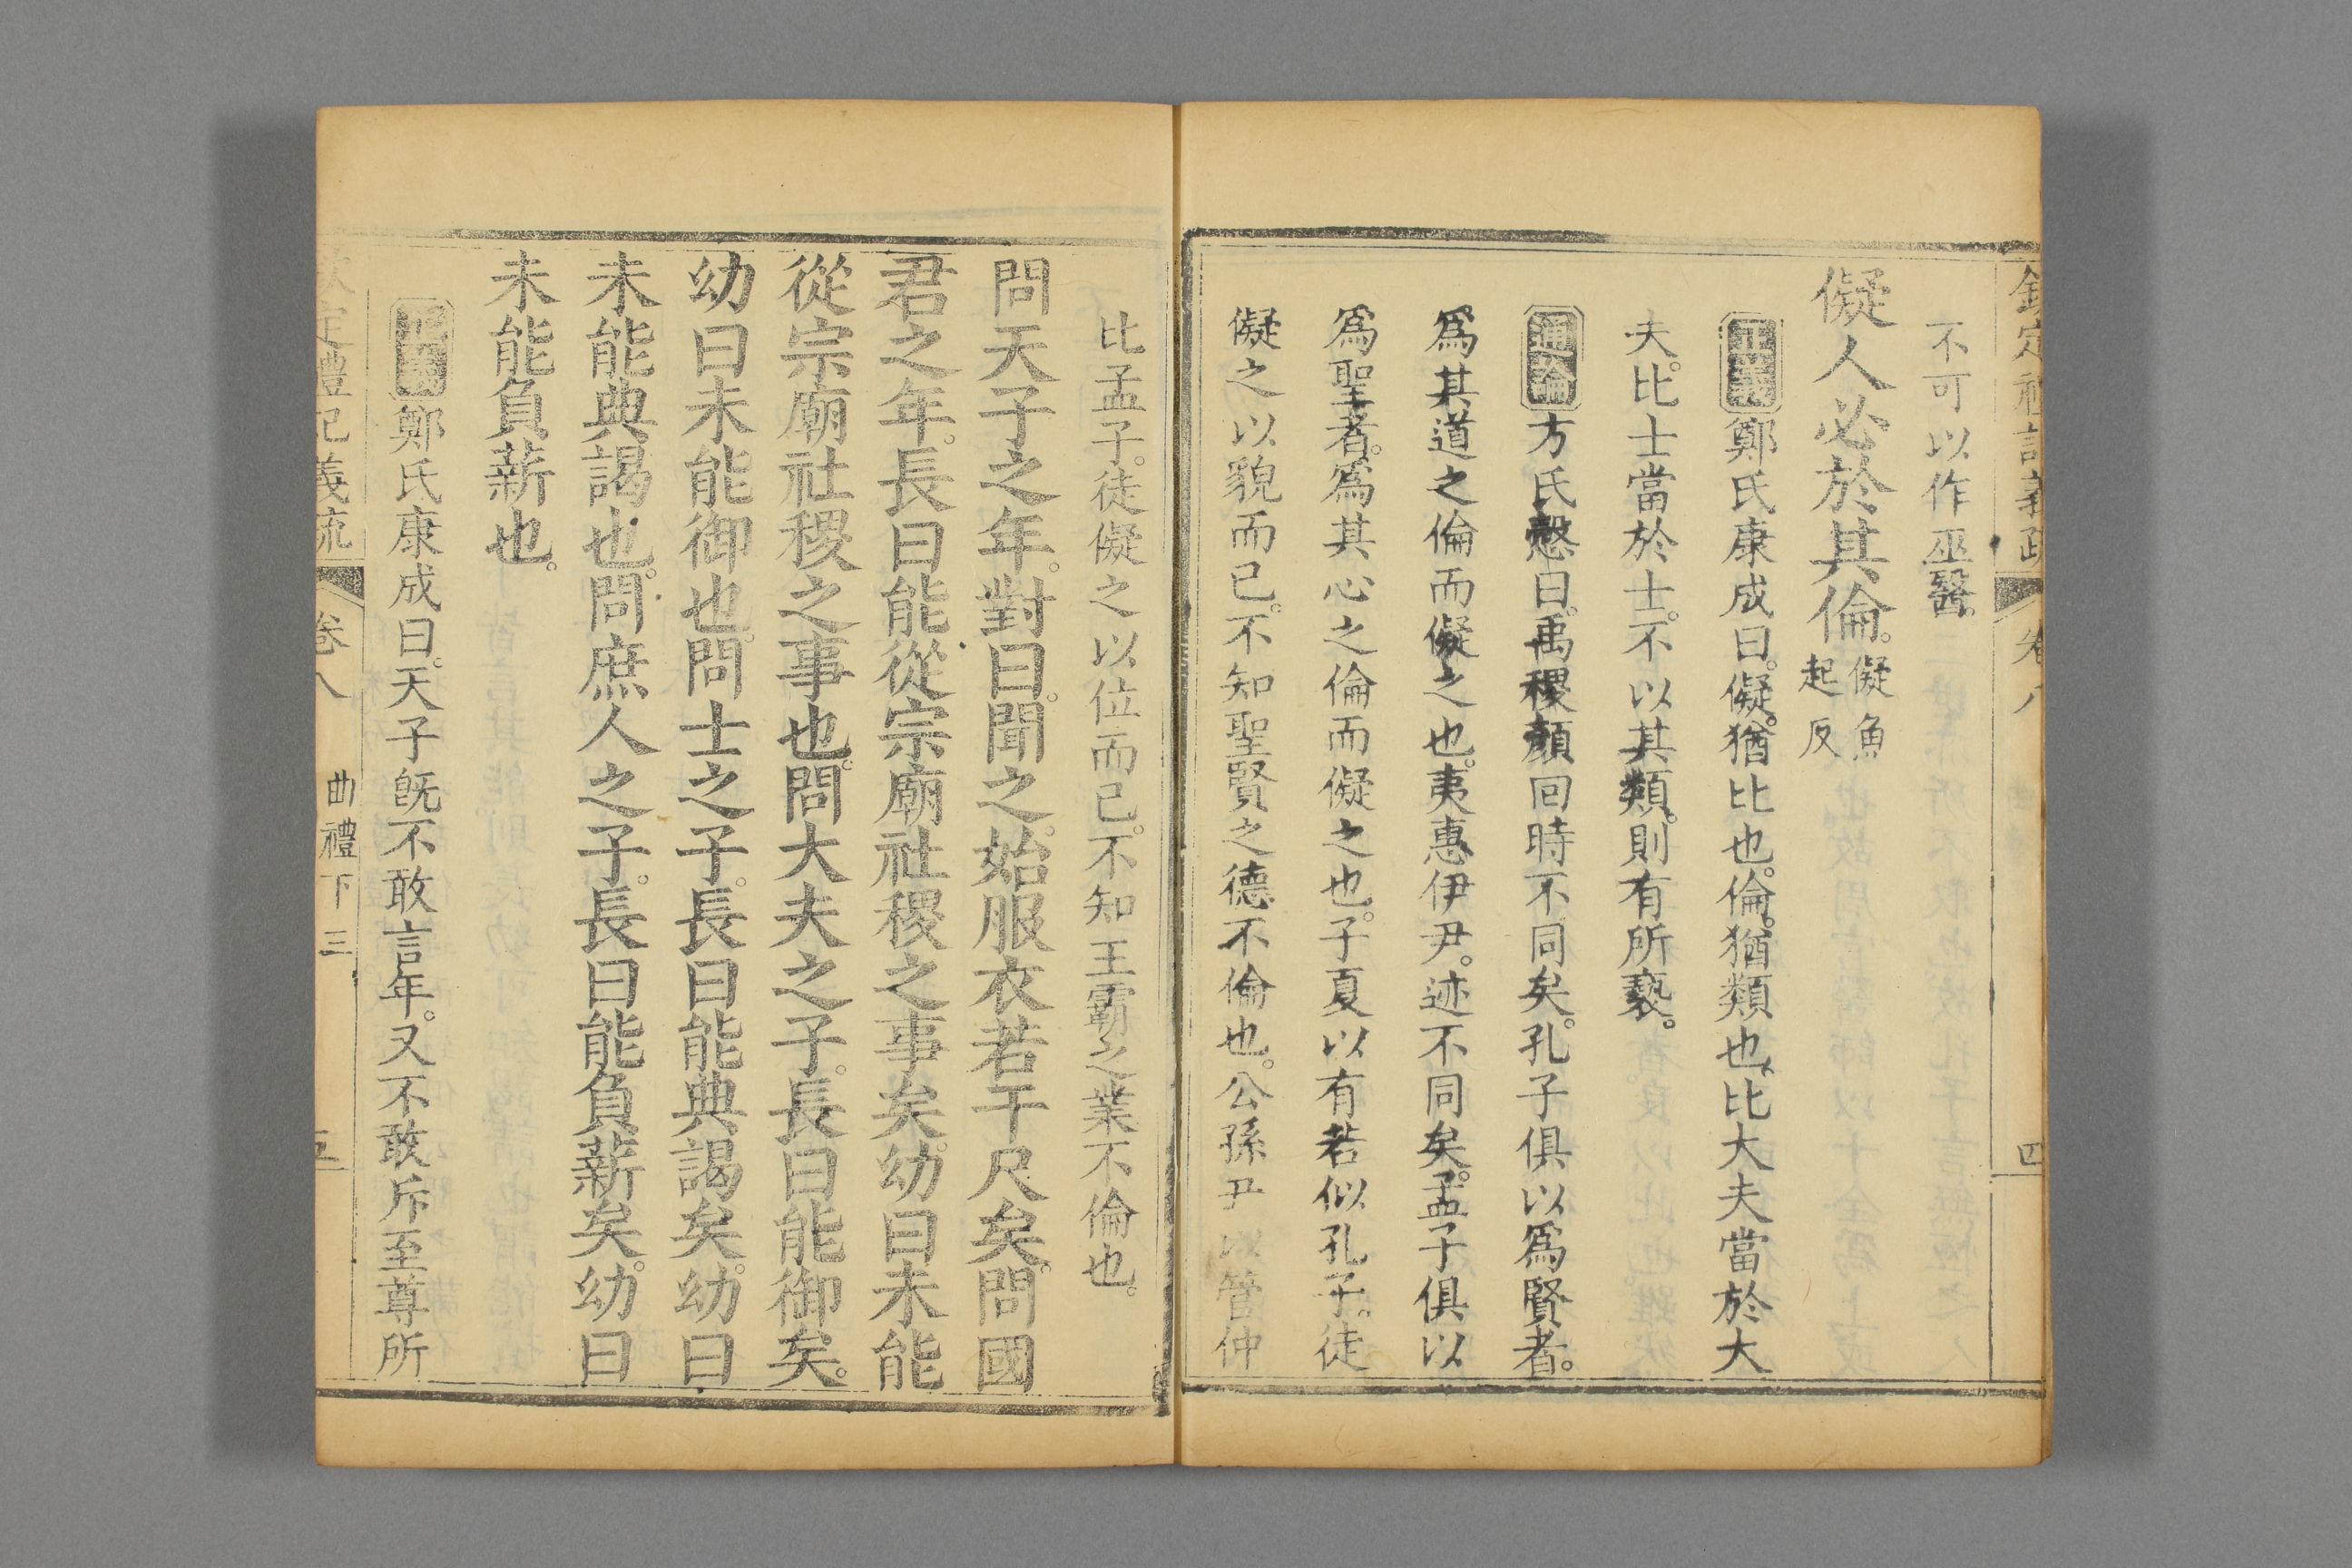 欽定禮記義疏 卷八 四
不可以作巫醫。
儗人必於其倫。儗魚起反
正義鄭氏康成曰。儗。猶比也。倫。猶類也。比大夫當於大
夫。比士當於士。不以其類。則有所褻。
通論方氏慤曰。禹稷顏回時不同矣。孔子俱以爲賢者。
爲其道之倫而儗之也。夷惠伊尹。迹不同矣。孟子俱以
爲聖者。爲其心之倫而儗之也。子夏以有若似孔子。徒
儗之以貌而已。不知聖賢之德不倫也。公孫丑以管仲
比孟子。徒儗之以位而已。不知王霸之業不倫也。
問天子之年。對曰。聞之。始服衣若干尺矣。問國
君之年。長曰能從宗廟社稷之事矣。幼曰未能
從宗廟社稷之事也。問大夫之子。長曰能御矣。
幼曰未能御也。問士之子。長曰能典謁矣。幼曰
未能典謁也。問庶人之子。長曰能負薪矣。幼曰
未能負薪也。
正義鄭氏康成曰。天子旣不敢言年。又不敢斥至尊所
欽定禮記義疏 卷八 曲禮下三 五